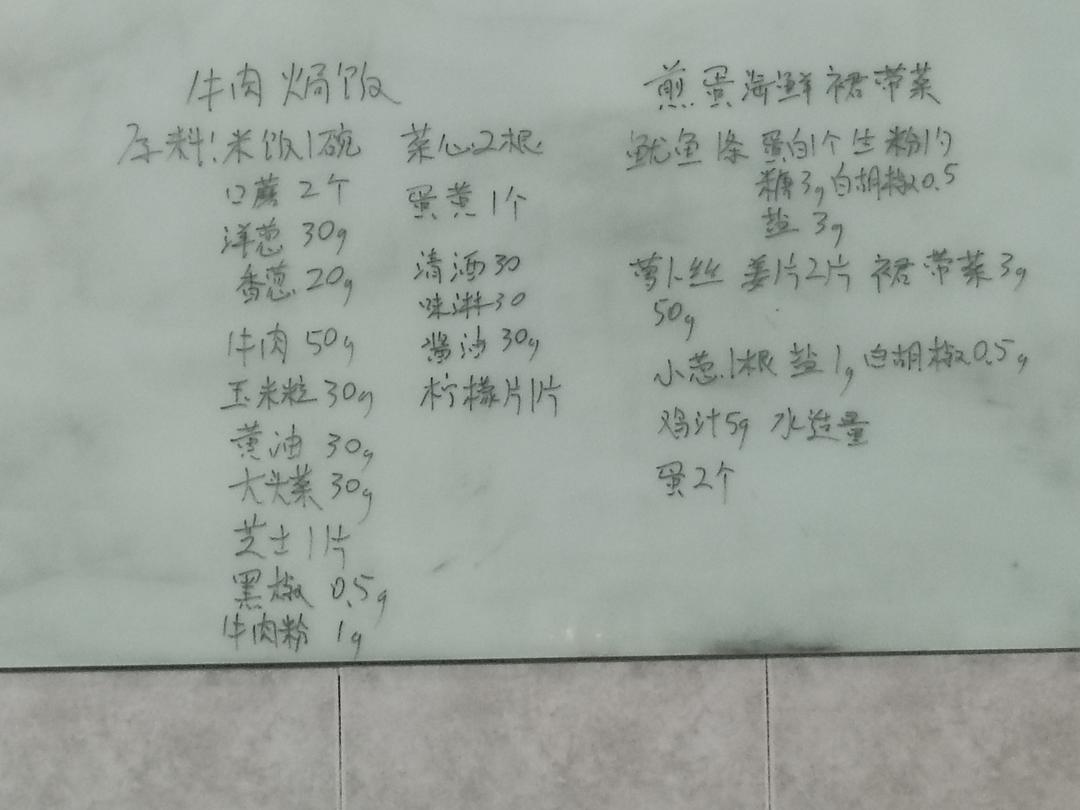 牛肉焗饭
原料:米饭1碗
口蘑 2个
洋葱 30g
香葱 20g
牛肉 50g
玉米粒 30g
黄油 30g
大头菜 30g
芝士 1片
黑椒 0.5g
牛肉粉 1g
菜心2根
蛋黄 1个
清酒 30
味淋 30
酱油 30g
柠檬片1片
煎蛋海鲜裙带菜
鱿鱼1条 蛋白1个 生粉1勺
糖3g 白胡椒0.5
盐 3g
萝卜丝 姜片2片 裙带菜3g
50g
小葱1根 盐1g 白胡椒0.5g
鸡汁5g 水适量
蛋2个